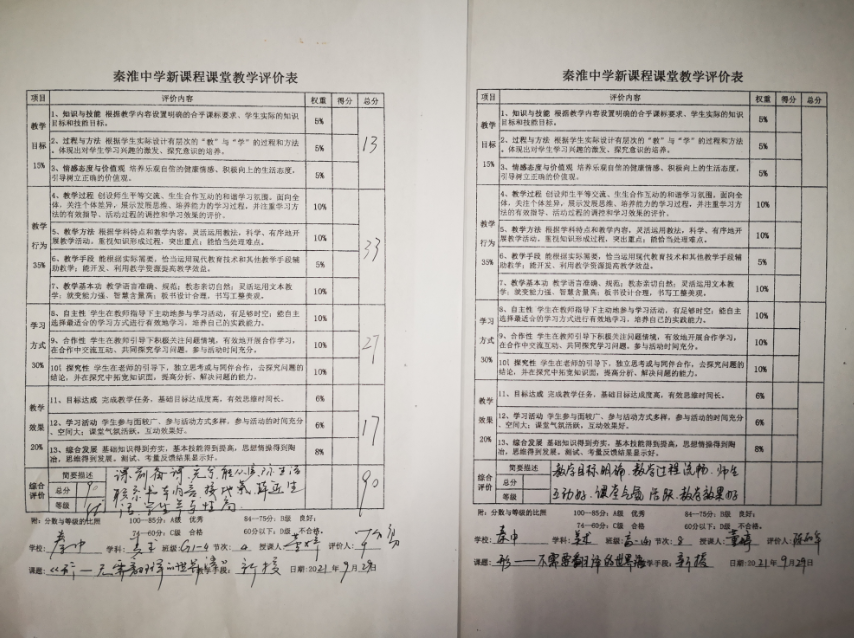 秦淮中学新课程课堂教学评价表
项目 评价内容 权重 得分 总分
教学目标 15%
1、知识与技能 根据教学内容设置明确的合乎课标要求、学生实际的知识
目标和技能目标。 5%
2、过程与方法 根据学生实际设计有层次的“教”与“学”的过程和方法
，体现出对学生学习兴趣的激发、探究意识的培养。 5%
13
3、情感态度与价值观 培养乐观自信的健康情感、积极向上的生活态度，
引导树立正确的价值观。 5%
教学行为 35%
4、教学过程 创设师生平等交流、生生合作互动的和谐学习氛围。面向全
体、关注个体差异，展示发展思维、培养能力的学习过程，并注重学习方
法的有效指导、活动过程的调控和学习效果的评价。 10%
5、教学方法 根据学科特点和教学内容，灵活运用教法，科学、有序地开
展教学活动，重视知识形成过程，突出重点；能恰当处理难点。 10%
33
6、教学手段 能根据实际需要，恰当运用现代教育技术和其他教学手段辅
助教学；能开发、利用教学资源提高教学效益。 5%
7、教学基本功 教学语言准确、规范；教态亲切自然；灵活运用文本教
学；应变能力强、智慧含量高；板书设计合理，书写工整美观。 10%
学习方式 30%
8、自主性 学生在教师指导下主动地参与学习活动，有足够时空；能自主
选择最适合的学习方式进行有效地学习，培养自己的实践能力。 10%
9、合作性 学生在教师引导下积极关注问题情境，有效地开展合作学习，
在合作中交流互动、共同探究学习问题，参与活动时间充分。 10%
27
10、探究性 学生在老师的引导下，独立思考或与同伴合作，去探究问题的
结论，并在探究中拓宽知识面，提高分析、解决问题的能力。 10%
教学效果 20%
11、目标达成 完成教学任务，基础目标达成度高，有效思维时间长。 6%
12、学习活动 学生参与面较广、参与活动方式多样，参与活动的时间充分
、空间大；课堂气氛活跃，互动效果好。 6%
17
13、综合发展 基础知识得到夯实，基本技能得到提高，思想情操得到陶
冶，思维得到发展。测试、考量反馈结果显示好。 8%
综合评价 简要描述
总分 90
等级 优
90
附：分数与等级的比图 100—85分：A级 优秀 84—75分：B级 良好；
74—60分：C级 合格 60分以下：D级 不合格。
学校： 秦中 学科： 班级： 节次：4 授课人： 评价人：
课题： 教学手段：新授 日期：2021年9月29日
秦淮中学新课程课堂教学评价表
项目 评价内容 权重 得分 总分
教学目标 15%
1、知识与技能 根据教学内容设置明确的合乎课标要求、学生实际的知识
目标和技能目标。 5%
2、过程与方法 根据学生实际设计有层次的“教”与“学”的过程和方法
，体现出对学生学习兴趣的激发、探究意识的培养。 5%
3、情感态度与价值观 培养乐观自信的健康情感、积极向上的生活态度，
引导树立正确的价值观。 5%
教学行为 35%
4、教学过程 创设师生平等交流、生生合作互动的和谐学习氛围。面向全
体、关注个体差异，展示发展思维、培养能力的学习过程，并注重学习方
法的有效指导、活动过程的调控和学习效果的评价。 10%
5、教学方法 根据学科特点和教学内容，灵活运用教法，科学、有序地开
展教学活动，重视知识形成过程，突出重点；能恰当处理难点。 10%
6、教学手段 能根据实际需要，恰当运用现代教育技术和其他教学手段辅
助教学；能开发、利用教学资源提高教学效益。 5%
7、教学基本功 教学语言准确、规范；教态亲切自然；灵活运用文本教
学；应变能力强、智慧含量高；板书设计合理，书写工整美观。 10%
学习方式 30%
8、自主性 学生在教师指导下主动地参与学习活动，有足够时空；能自主
选择最适合的学习方式进行有效地学习，培养自己的实践能力。 10%
9、合作性 学生在教师引导下积极关注问题情境，有效地开展合作学习，
在合作中交流互动、共同探究学习问题，参与活动时间充分。 10%
10、探究性 学生在老师的引导下，独立思考或与同伴合作，去探究问题的
结论，并在探究中拓宽知识面，提高分析、解决问题的能力。 10%
教学效果 20%
11、目标达成 完成教学任务，基础目标达成度高，有效思维时间长。 6%
12、学习活动 学生参与面较广、参与活动方式多样，参与活动的时间充分
、空间大；课堂气氛活跃，互动效果好。 6%
13、综合发展 基础知识得到夯实，基本技能得到提高，思想情操得到陶
冶，思维得到发展。测试、考量反馈结果显示好。 8%
综合评价 简要描述 教学目标明确 教学过程流畅 师生
总分
互动好 课堂气氛活跃 教学效果好
等级
附：分数与等级的比图 100—85分：A级 优秀 84—75分：B级 良好；
74—60分：C级 合格 60分以下：D级 不合格。
学校：秦中 学科：美术 班级： 节次：8 授课人：董婷 评价人：
课题：形——不需要翻译的世界语 教学手段：新授 日期：2021年9月29日